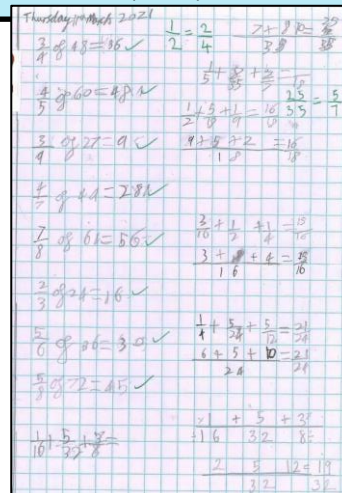 Thursday 11th March 2021
3/4 of 48 = 36 ✓
4/5 of 60 = 48 ✓
of 27 = 9
4/7 of 49 = 28 ✓
7/8 of 64 = 56 ✓
2/3 of 24 = 16 ✓
5/6 of 36 = 30 ✓
5/8 of 72 = 45 ✓
1/16 + 5/32 + 3/8 =
1/2 = 2/4
25/35 = 5/7
1/2 + 5/18 + 1/9 = 16/18
9 + 5 + 2 = 16
18 18
3/16 + 1/2 + 1/4 = 15/16
3 + 8 + 4 = 15
16 16
1/4 + 5/24 + 5/12 = 21/24
6 + 5 + 10 = 21
24 24
1 + 5 + 3
16 32 8
2 5 12 = 19
32 32